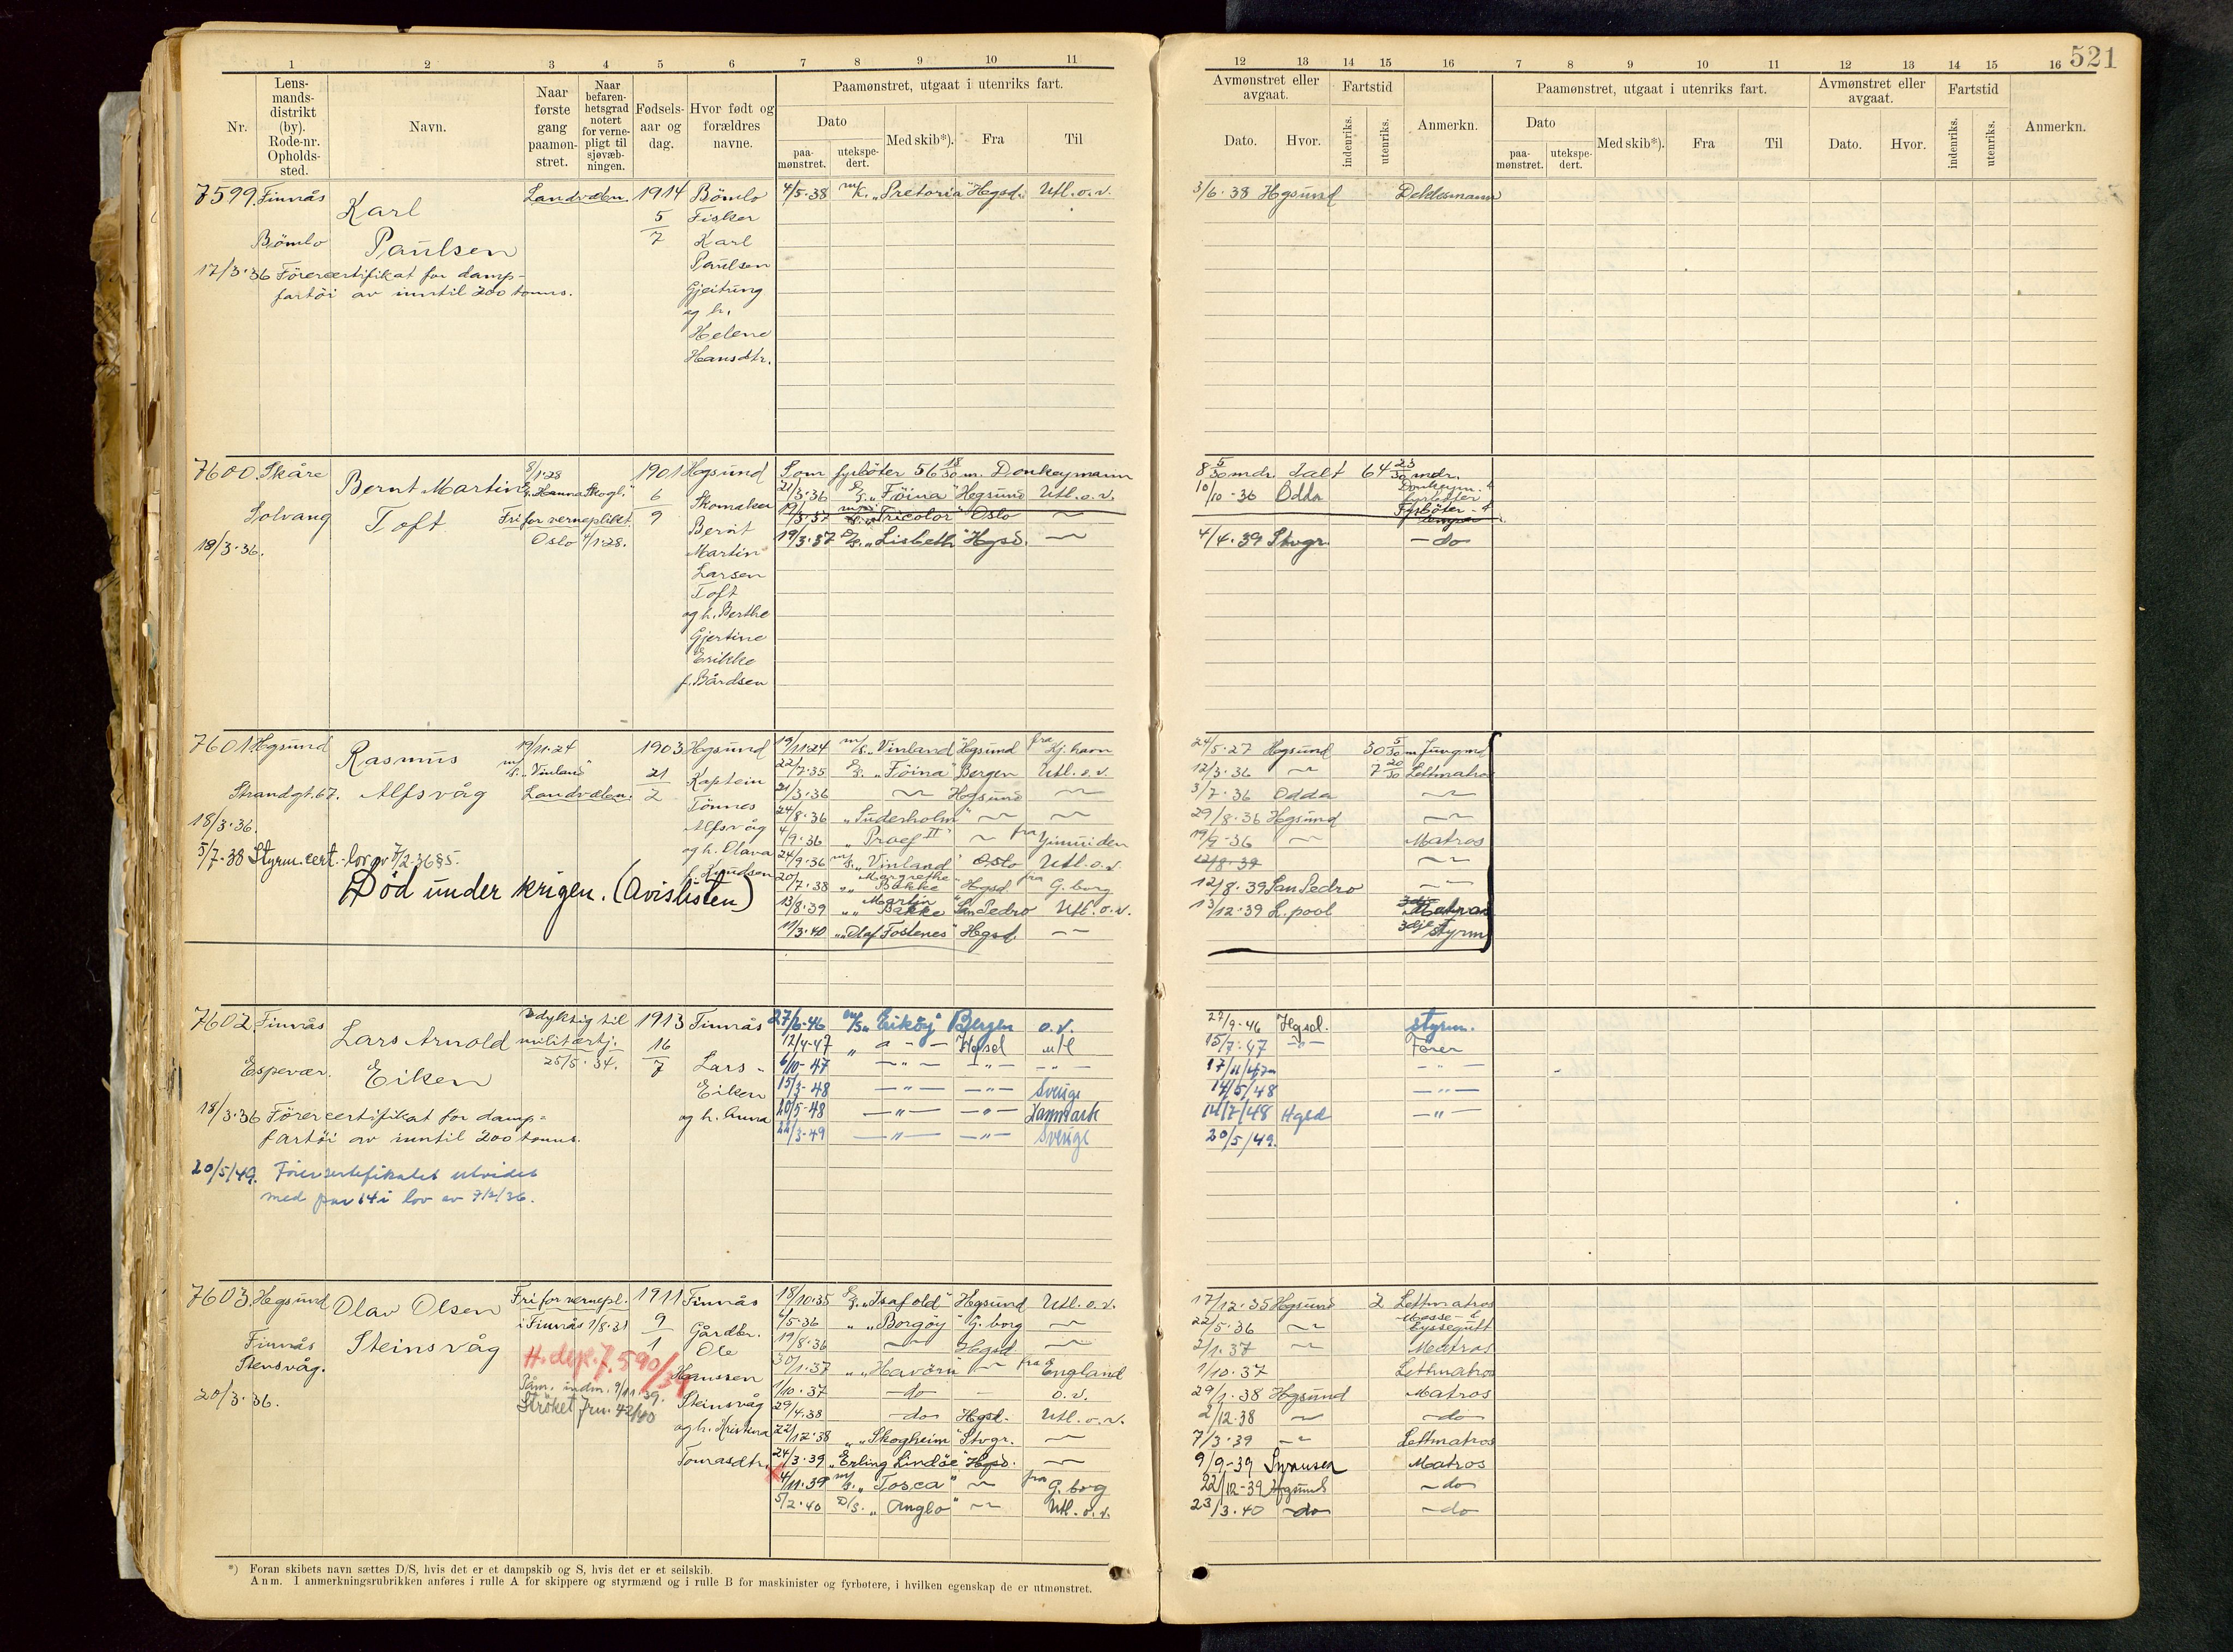 521
1 2 3 4 5 6 7 8 9 10 11
12 13 14 15 16 7 8 9 10 11 12 13 14 15 16
Nr.
Lens-
mands-
distrikt
(by).
Rode-nr.
Opholds-
sted.
Navn.
Naar
første
gang
paamøn-
stret.
Naar
befaren-
hetsgrad
notert
for verne-
pligt til
sjøvæb-
ningen.
Fødsels-
aar og
dag.
Hvor født og
forældres
navne.
Paamønstret, utgaat i utenriks fart.
Dato
paa-
mønstret.
utekspe-
dert.
Med skib*).
Fra
Til
Avmønstret eller
avgaat.
Dato.
Hvor.
Fartstid
indenriks.
utenriks.
Anmerkn.
Paamønstret, utgaat i utenriks fart.
Dato
paa-
mønstret.
utekspe-
dert.
Med skib*).
Fra
Til
Avmønstret eller
avgaat.
Dato.
Hvor.
Fartstid
indenriks.
utenriks.
Anmerkn.
7599. Finnås
Bömlo
Karl
Paulsen
17/3.36 Förercertifikat for damp-
fartöi av inntil 200 tonns.
Landvden.
1914
5
7
Bömlo
Fisker
Karl
Paulsen
Gjeitung
og h.
Helene
Hansdtr.
4/5.38 m/k. „Pretoria" Hegsd. Utl.o.v.
3/6.38 Hgsund Dekksmann
7600. Skåre
Solvang
18/3.36.
Bernt Martin
Toft
8/1.28
„Hanna Skogl."
Fri for verneplikt.
Oslo 4/1.28.
1901
6
9
Hegsund
Skomaker
Bernt
Martin
Larsen
Toft
og h. Berthe
Gjertine
Erikke
f. Bårdsen
Som fyrböter 56 18/30 m. Donkeymann
21/3.36 D/S. „Föina" Hegsund Utl.o.v.
19/3.37 „Tricolor" Oslo
19/3.37 D/S. „Lisbeth" Hgsd.
8 5/30 mdr. Ialt 64 23/30 mdr.
10/10-36 Odda Donkeym. &
fyrböter
Fyrböter-&
4/4.39 Stvgr. -do
7601 Hegsund
Strandgt. 67.
18/3.36.
Rasmus
Alfsvåg
5/7.38 Styrm.cert.-lov av 7/2.36 §5.
Död under krigen. (Avislisten)
19/11.24
m/s. „Vinland"
Landvden.
1903
21
2
Hegsund
Kaptein
Tönnes
Alfsvåg
og h. Olava
f. Knudsen
19/11.24 m/s. „Vinland" Hgsund fra Kj.havn
22/7.35 D/S. „Föina" Bergen Utl.o.v.
21/3.36 Hegsund
24/8.36 „Suderholm"
4/9.36 „Praef II" fra Ijmuiden
24/9.36 m/s. „Vinland" Oslo Utl.o.v.
20/7.38 „ „Margrethe Bakke" Hgsd. fra G.borg
13/8.39 „ „Martin Bakke" San Pedro Utl.o.v.
11/3.40 „ „Olaf Fostenes" Hgsd.
24/5.27 Hegsund 30 5/30 m Jungmd
12/3.36 7 20/30 Lettmatros
3/7.36 Odda
29/8.36 Hegsund
19/9-36 Matros
12/8.39
12/8.39 San Pedro
13/12.39 L.pool Matros
3dje styrm
7602. Finnås
Espevær.
Lars Arnold
Eiken
18/3.36 Förercertifikat for damp-
fartöi av inntil 200 tonns.
20/5/49. Förersertifikatet utvidet
med par 14 i lov av 7/2/36.
Udyktig til
militærtj.
25/5.34.
1913
16
7
Finnås
Lars
Eiken
og h. Anna
27/6-46 m/s „Eiköy" Bergen o.v.
12/4-47 Hgsd utl
6/10-47
15/3-48 Sverige
20/5-48 Danmark
22/3-49 Sverige
27/9-46 Hgsd. styrm.
15/7-47 Förer
17/11/47
14/5/48
14/7/48 Hgsd
20/5/49.
7603. Hegsund
Finnås
Stensvåg.
20/3.36.
Olav Olsen
Steinsvåg
Fri for vernepl.
i Finnås 1/8.31
H.dep. J. 590/39
Påm. indm. 9/11.39.
Ströket Jrn. 42/40
1911
9
1
Finnås
Gårdbr.
Ole
Hanssen
Steinsvåg
og h. Kristina
Tomasdtr.
18/10.35 D/S. „Isafold" Hegsund Utl.o.v.
4/5.36 „ „Borgöy" G.borg
19/8.36 Hegsd
30/1.37 „ „Havörn" fra England
1/10.37 do o.v.
29/4.38 do Hgsd. Utl.o.v.
22/12.38 „ „Skogheim" Stvgr.
24/3.39 „Erling Lindöe" Hgsd.
4/11.39 m/s. „Tosca" fra G.borg
5/2.40 D/s. „Anglo" Utl.o.v.
17/12.35 Hegsund 2 Lettmatros
22/5.36 Messe- &
Byssegutt
2/1.37 Matros
1/10.37 Lettmatros
29/1.38 Hgsund Matros
2/12.38 do
7/3.39 Lettmatros
9/9-39 Matros
22/12-39 Hgsund do
23/3.40 do do
*) Foran skibets navn sættes D/S, hvis det er et dampskib og S, hvis det er et seilskib.
Anm. I anmerkningsrubrikken anføres i rulle A for skippere og styrmænd og i rulle B for maskinister og fyrbøtere, i hvilken egenskap de er utmønstret.